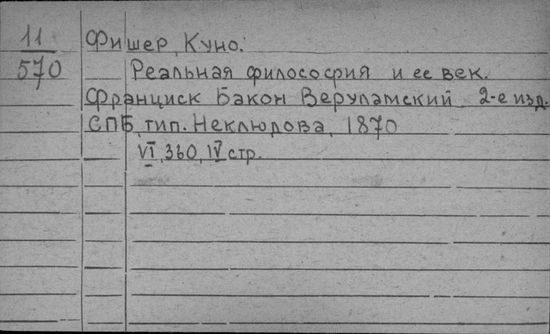 11
570
Фишер, Куно.
Реальная философия и ее век.
Франциск Бакон Веруламский. 2-е изд.
СПБ, тип. Неклюдова, 1870
VI, 360, IV стр.